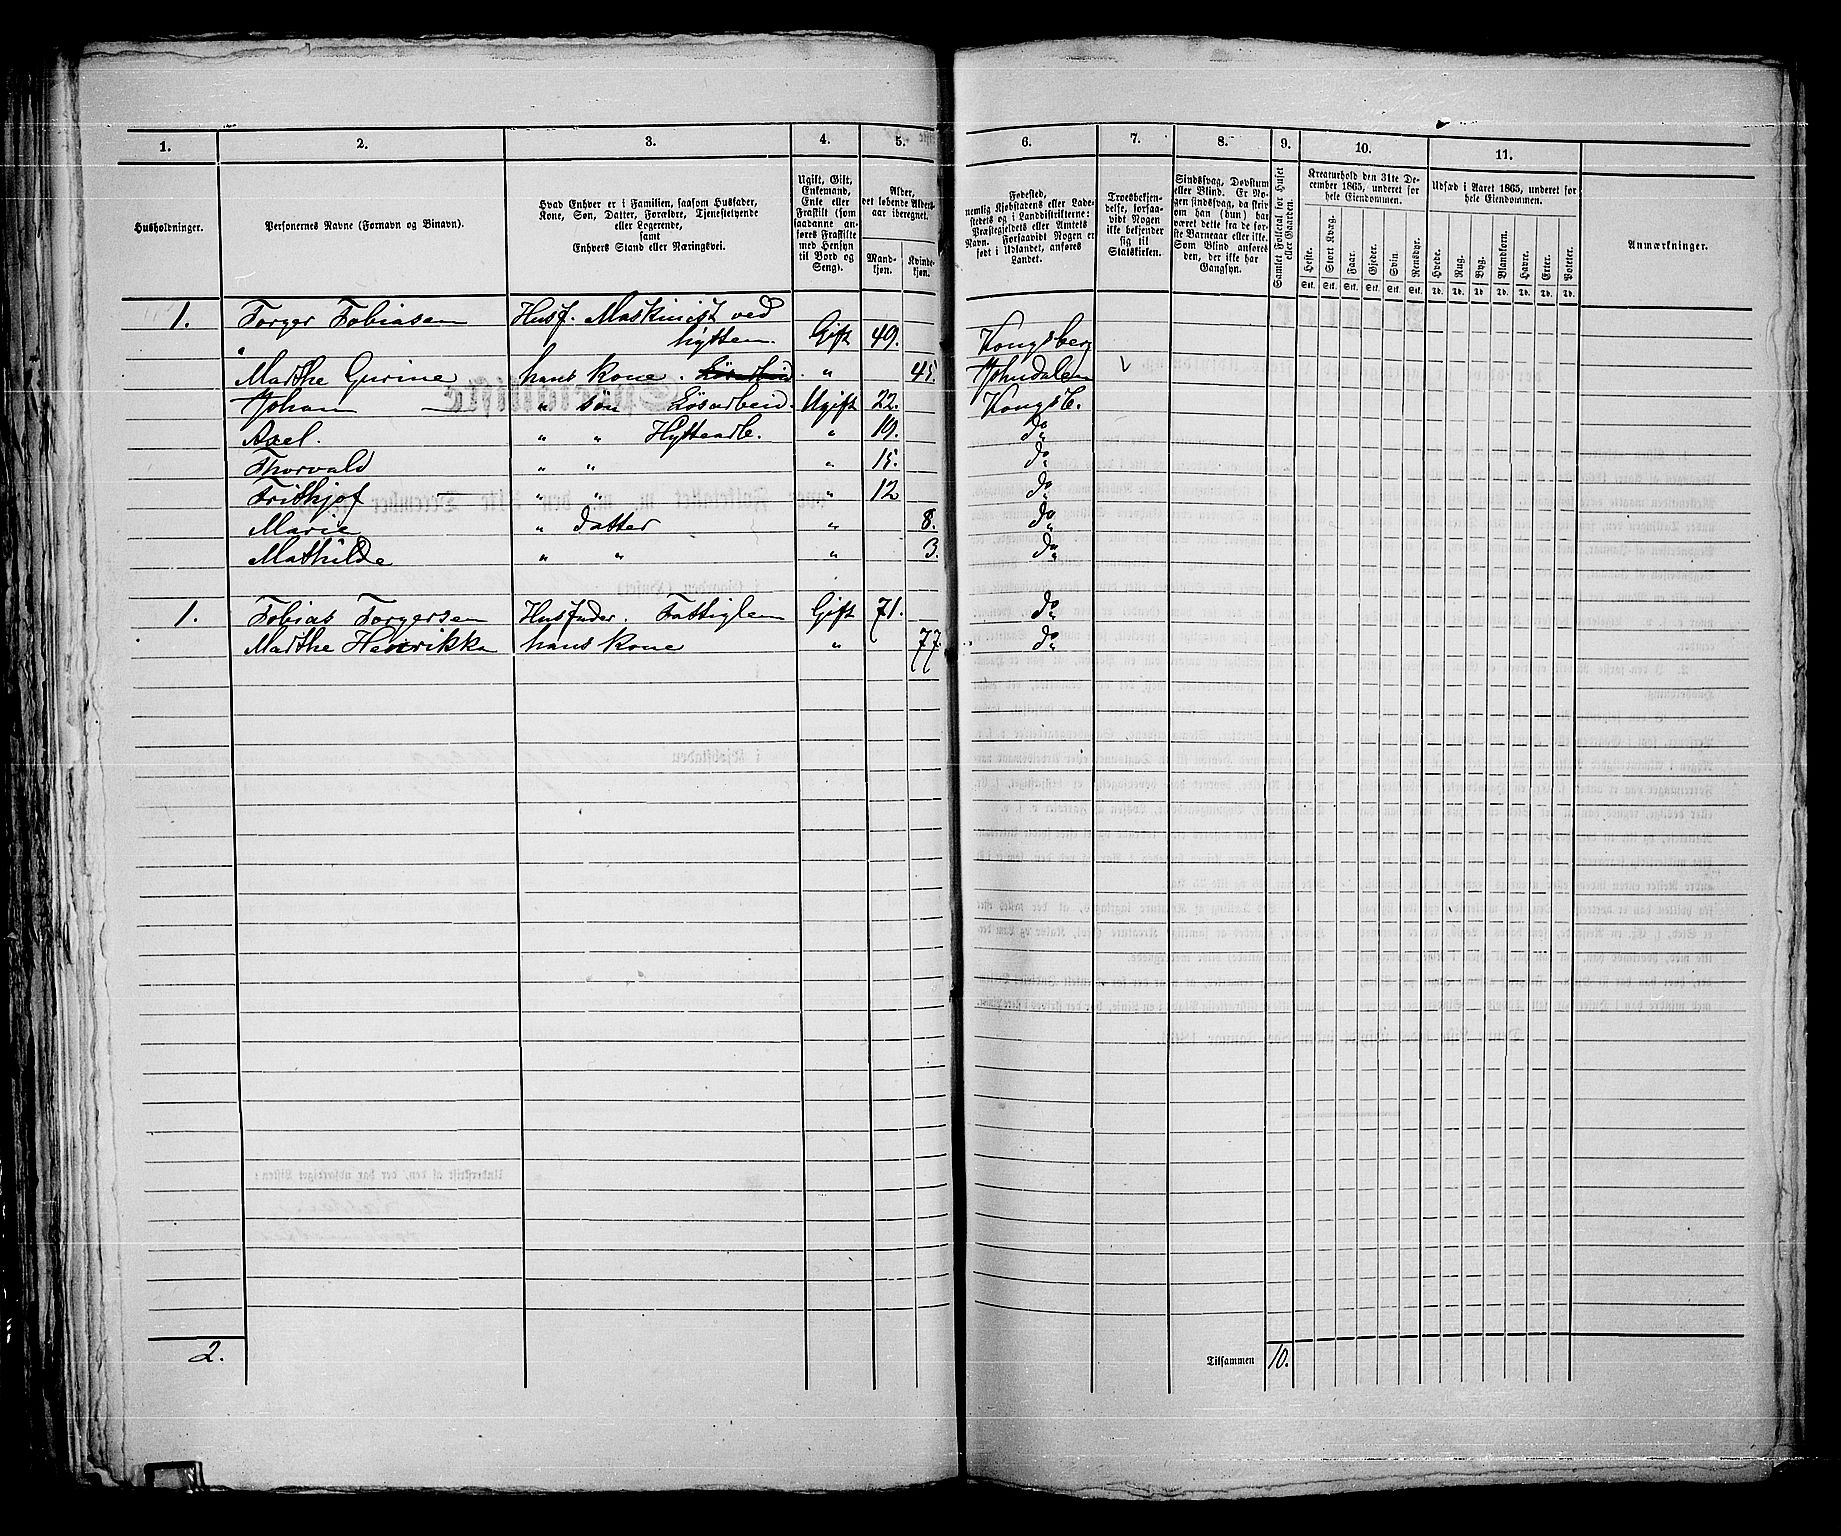 1. 2. 3. 4. 5. 6. 7. 8. 9. 10. 11.
Husholdninger.
Personernes Navne (Fornavn og Binavn).
Hvad Enhver er i Familien, saasom Husfader,
Kone, Søn, Datter, Forældre, Tjenestetyende
eller Logerende,
samt
Enhvers Stand eller Næringsvei.
Ugift, Gift,
Enkemand,
Enke eller
Fraskilt (som
saadanne an-
føres Fraskilte
med Hensyn
til Bord og
Seng).
Alder,
det løbende Alders-
aar iberegnet.
Mand-
kjøn.
Kvinde-
kjøn.
Fødested,
nemlig Kjøbstadens eller Lade-
stedets og i Landdistrikterne:
Præstegjeldets eller Amtets
Navn. Forsaavidt Nogen er
født i Udlandet, anføres
Landet.
Troesbekjen-
delse, forsaa-
vidt Nogen
ikke bekjender
sig til
Statskirken.
Sindssvag, Døvstum
eller Blind. Er No-
gen sindssvag, da skriv
om han (hun) har
været dette fra de før-
ste Barneaar eller ikke.
Som Blind anføres
den, der ikke har
Gangsyn.
Samlet Folketal for Huset
eller Gaarden.
Kreaturhold den 31te De-
cember 1865, underet for
hele Eiendommen.
Heste. Stort Kvæg. Faar. Gjeder. Svin. Rensdyr.
Stk. Stk. Stk. Stk. Stk. Stk.
Udsæd i Aaret 1865, underet for
hele Eiendommen.
Hvede. Rug. Byg. Blandkorn. Havre. Erter. Poteter.
Td. Td. Td. Td. Td. Td. Td.
Anmærkninger.
1. Torger Tobiasen Husf. Maskinist ved
hytten. Gift 49. Kongsberg
Marthe Gurine hans Kone. " 45. Johndalen
Johan — " søn Løsarbeid. Ugift 22. Kongsb.
Axel. " " Hyttearb. " 19. do
Thorvald " " " 15. do
Frithjof — " " " 12 do
Marie " datter " 8. do
Mathilde " " " 3. do
1. Tobias Torgersen Husfader. Fattiglem Gift 71. do
Marthe Henrikka hans Kone " 77. do
2. Tilsammen 10.